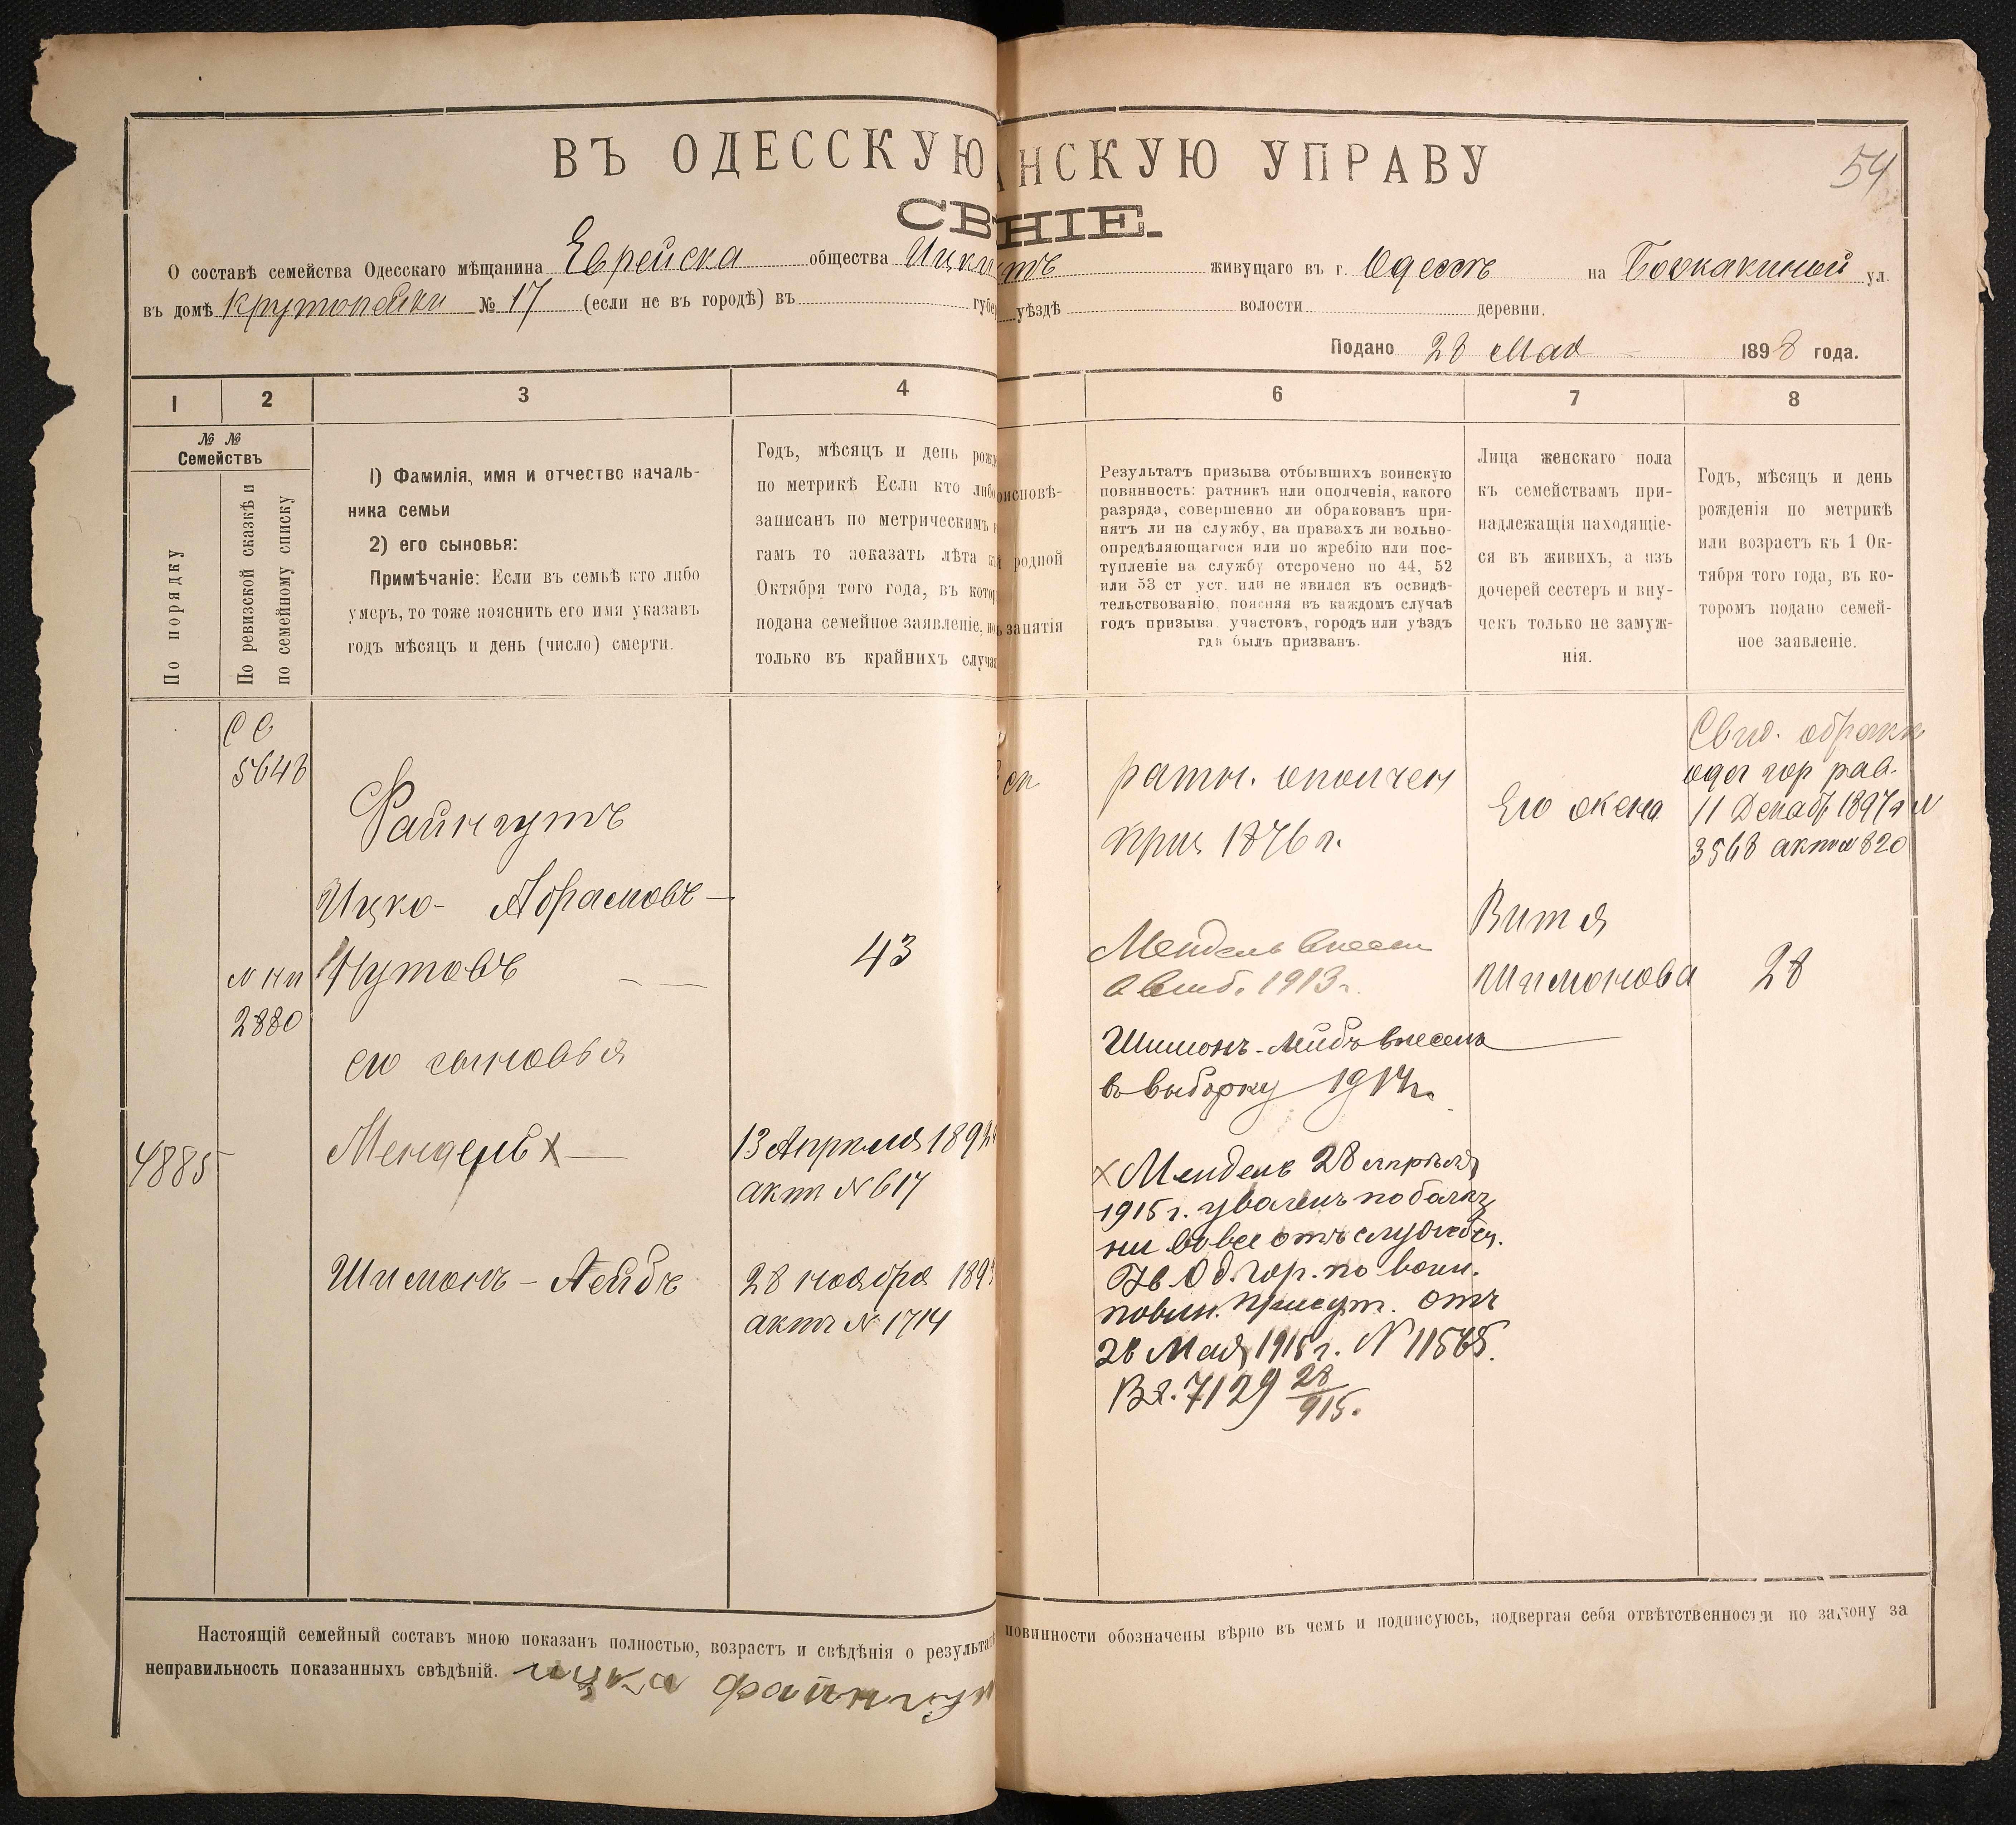 54
ВЪ ОДЕССКУЮ НСКУЮ УПРАВУ
СВ НІЕ.
О составѣ семейства Одесскаго мѣщанина Еврейска общества живущаго въ г. Одессѣ на ул.
въ домѣ № 17 (если не въ городѣ) въ губе уѣздѣ волости деревни.
Подано 28 Мая 1898 года.
1 2 3 4 6 7 8
№ №
Семействъ
По порядку
По ревизской сказкѣ и
по семейному списку
1) Фамилія, имя и отчество началь-
ника семьи
2) его сыновья:
Примѣчаніе: Если въ семьѣ кто либо
умеръ, то тоже пояснить его имя указавъ
годъ мѣсяцъ и день (число) смерти.
Годъ, мѣсяцъ и день рожд
по метрикѣ Если кто либо
записанъ по метрическимъ
гамъ то показать лѣта къ
Октября того года, въ котор
подана семейное заявленіе, но
только въ крайнихъ случа
исповѣ-
родной
занятія
Результатъ призыва отбывшихъ воинскую
повинность: ратникъ или ополченія, какого
разряда, совершенно ли обракованъ при-
нятъ ли на службу, на правахъ ли вольно-
опредѣляющагося или по жребію или пос-
тупленіе на службу отсрочено по 44, 52
или 53 ст уст. или не явился къ освидѣ-
тельствованію, поясняя въ каждомъ случаѣ
годъ призыва участокъ, городъ или уѣздъ
гдѣ былъ призванъ.
Лица женскаго пола
къ семействамъ при-
надлежащія находящіе-
ся въ живихъ, а изъ
дочерей сестеръ и вну-
чекъ только не замуж-
нія.
Годъ, мѣсяцъ и день
рожденія по метрикѣ
или возрастъ къ 1 Ок-
тября того года, въ ко-
торомъ подано семей-
ное заявленіе.
СС
5648
Файнгутъ
Ицко- Абрамовъ
Нутовъ
43
2880
его сыновья
4885
Мендель х
13 Апреля 189
актъ № 617
Шимонъ - Лейбъ
28 ноября 189
актъ № 1714
ратн. ополчен
приз 1876 г.
Мендель внесен
1913 г.
Шимонъ-Лейбъ внесенъ
въ выборку 1914 г.
х Мендель 28 апрѣля
1915 г. уволенъ по болѣз
ни вовсе отъ службы.
Од. Гор. по воин.
повин. Присут. отъ
28 Мая 1915 г. № 11565.
Вх. 7129 28/915.
Его жена
Витя
Шимонова
28
Свид. о бракѣ
одес гор рав.
11 Декабр 1897 г №
3568 актъ 820
Настоящій семейный составъ мною показанъ полностью, возрастъ и свѣдѣнія о результат повинности обозначены вѣрно въ чемъ и подписуюсь, подвергая себя отвѣтственности по закону за
неправильность показанныхъ свѣдѣній. ицка файнгут